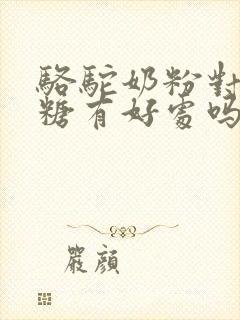 駱駝奶粉對
糖有好處嗎
嚴顏